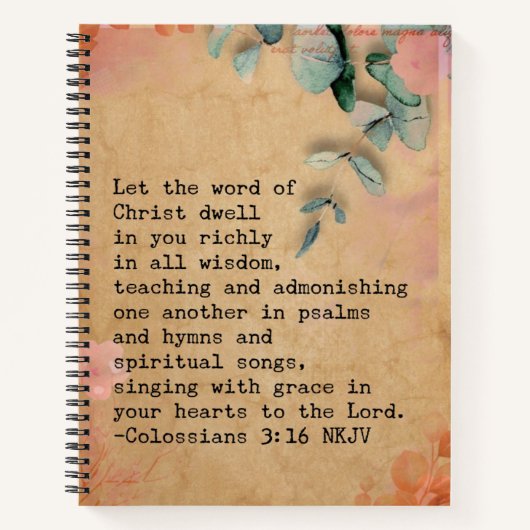 aorles dolore magna aliq
erat volutpat
Let the word of
Christ dwell
in you richly
in all wisdom,
teaching and admonishing
one another in psalms
and hymns and
spiritual songs,
singing with grace in
your hearts to the Lord.
-Colossians 3:16 NKJV